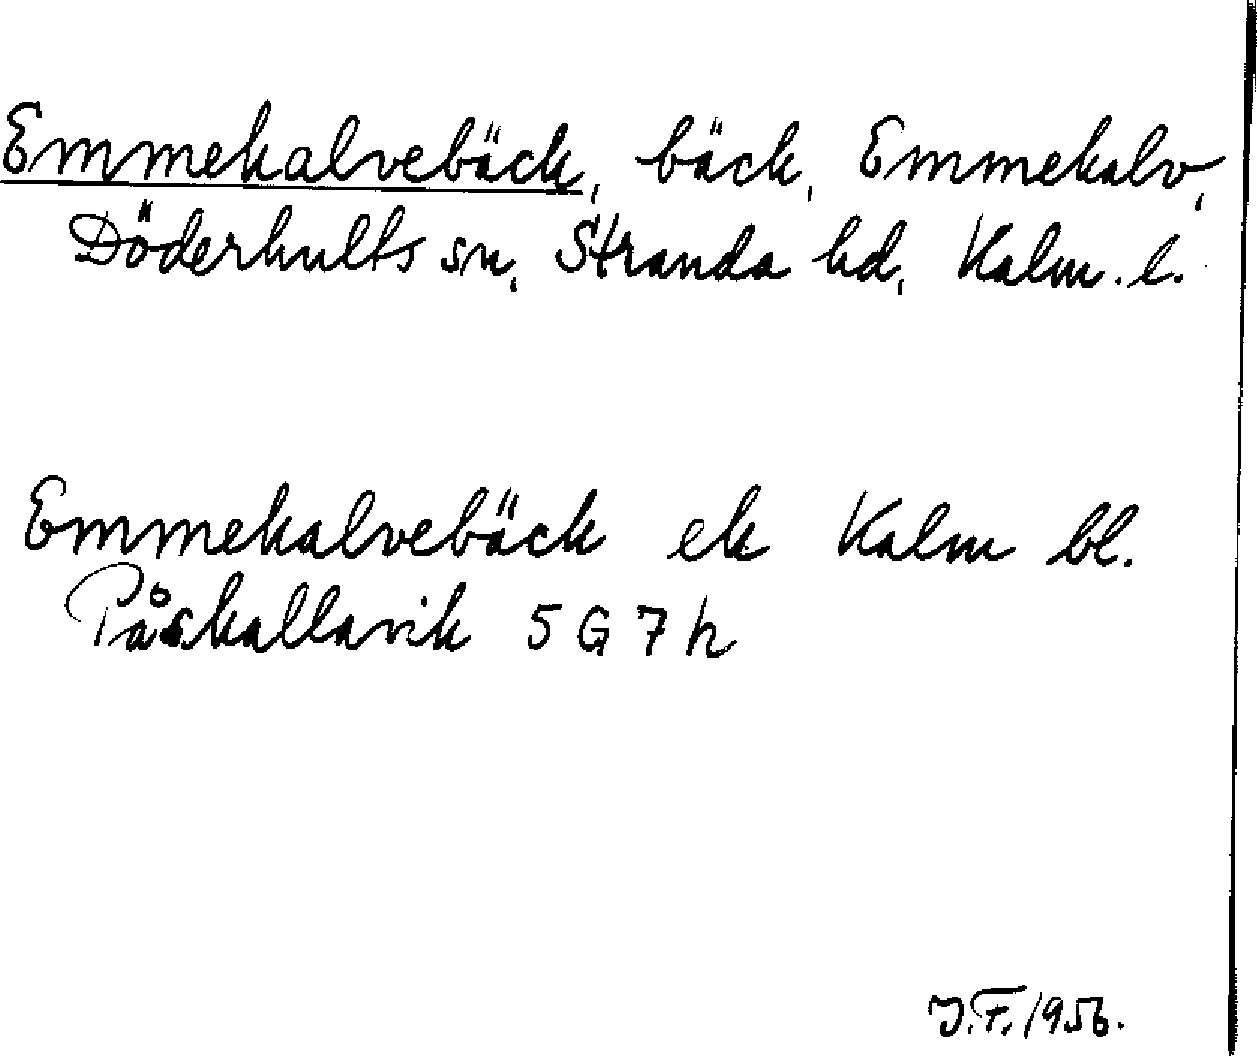 Emmekalvebäck, bäck, Emmekalv,
Döderhults sn, Stranda hd, Kalm. l.
Emmekalvebäck ek Kalm bl.
Påskallavik 5 G 7 h
J.F. 1956.